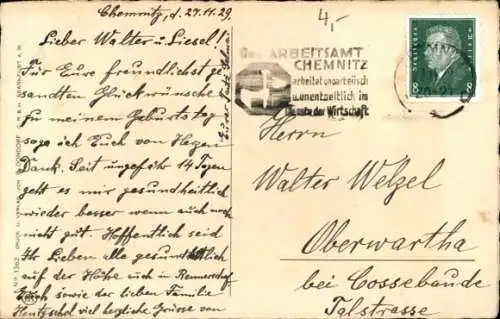 Chemnitz, d. 27.11.29.
4,-
Lieber Walter u. Liesel!
Für Eure freundlichst ge-
sandten Glückwünsche
zu meinem Geburtstag
sage ich Euch von Herzen
Dank. Seit ungefähr 14 Tagen
geht es mir gesundheitlich
wieder besser wenn auch noch
nicht gut. Hoffentlich seid
Ihr Lieben alle gesundheitlich
auf der Höhe auch in Rennersdorf
Euch sowie der lieben Familie
Hentzschel viel herzliche Grüsse von
Eure
ARBEITSAMT
CHEMNITZ
arbeitet unparteiisch
u. unentgeltlich im
Dienste der Wirtschaft
Deutsches Reich
8 8
Herrn
Walter Welzel
Oberwartha
bei Cossebaude
Talstrasse